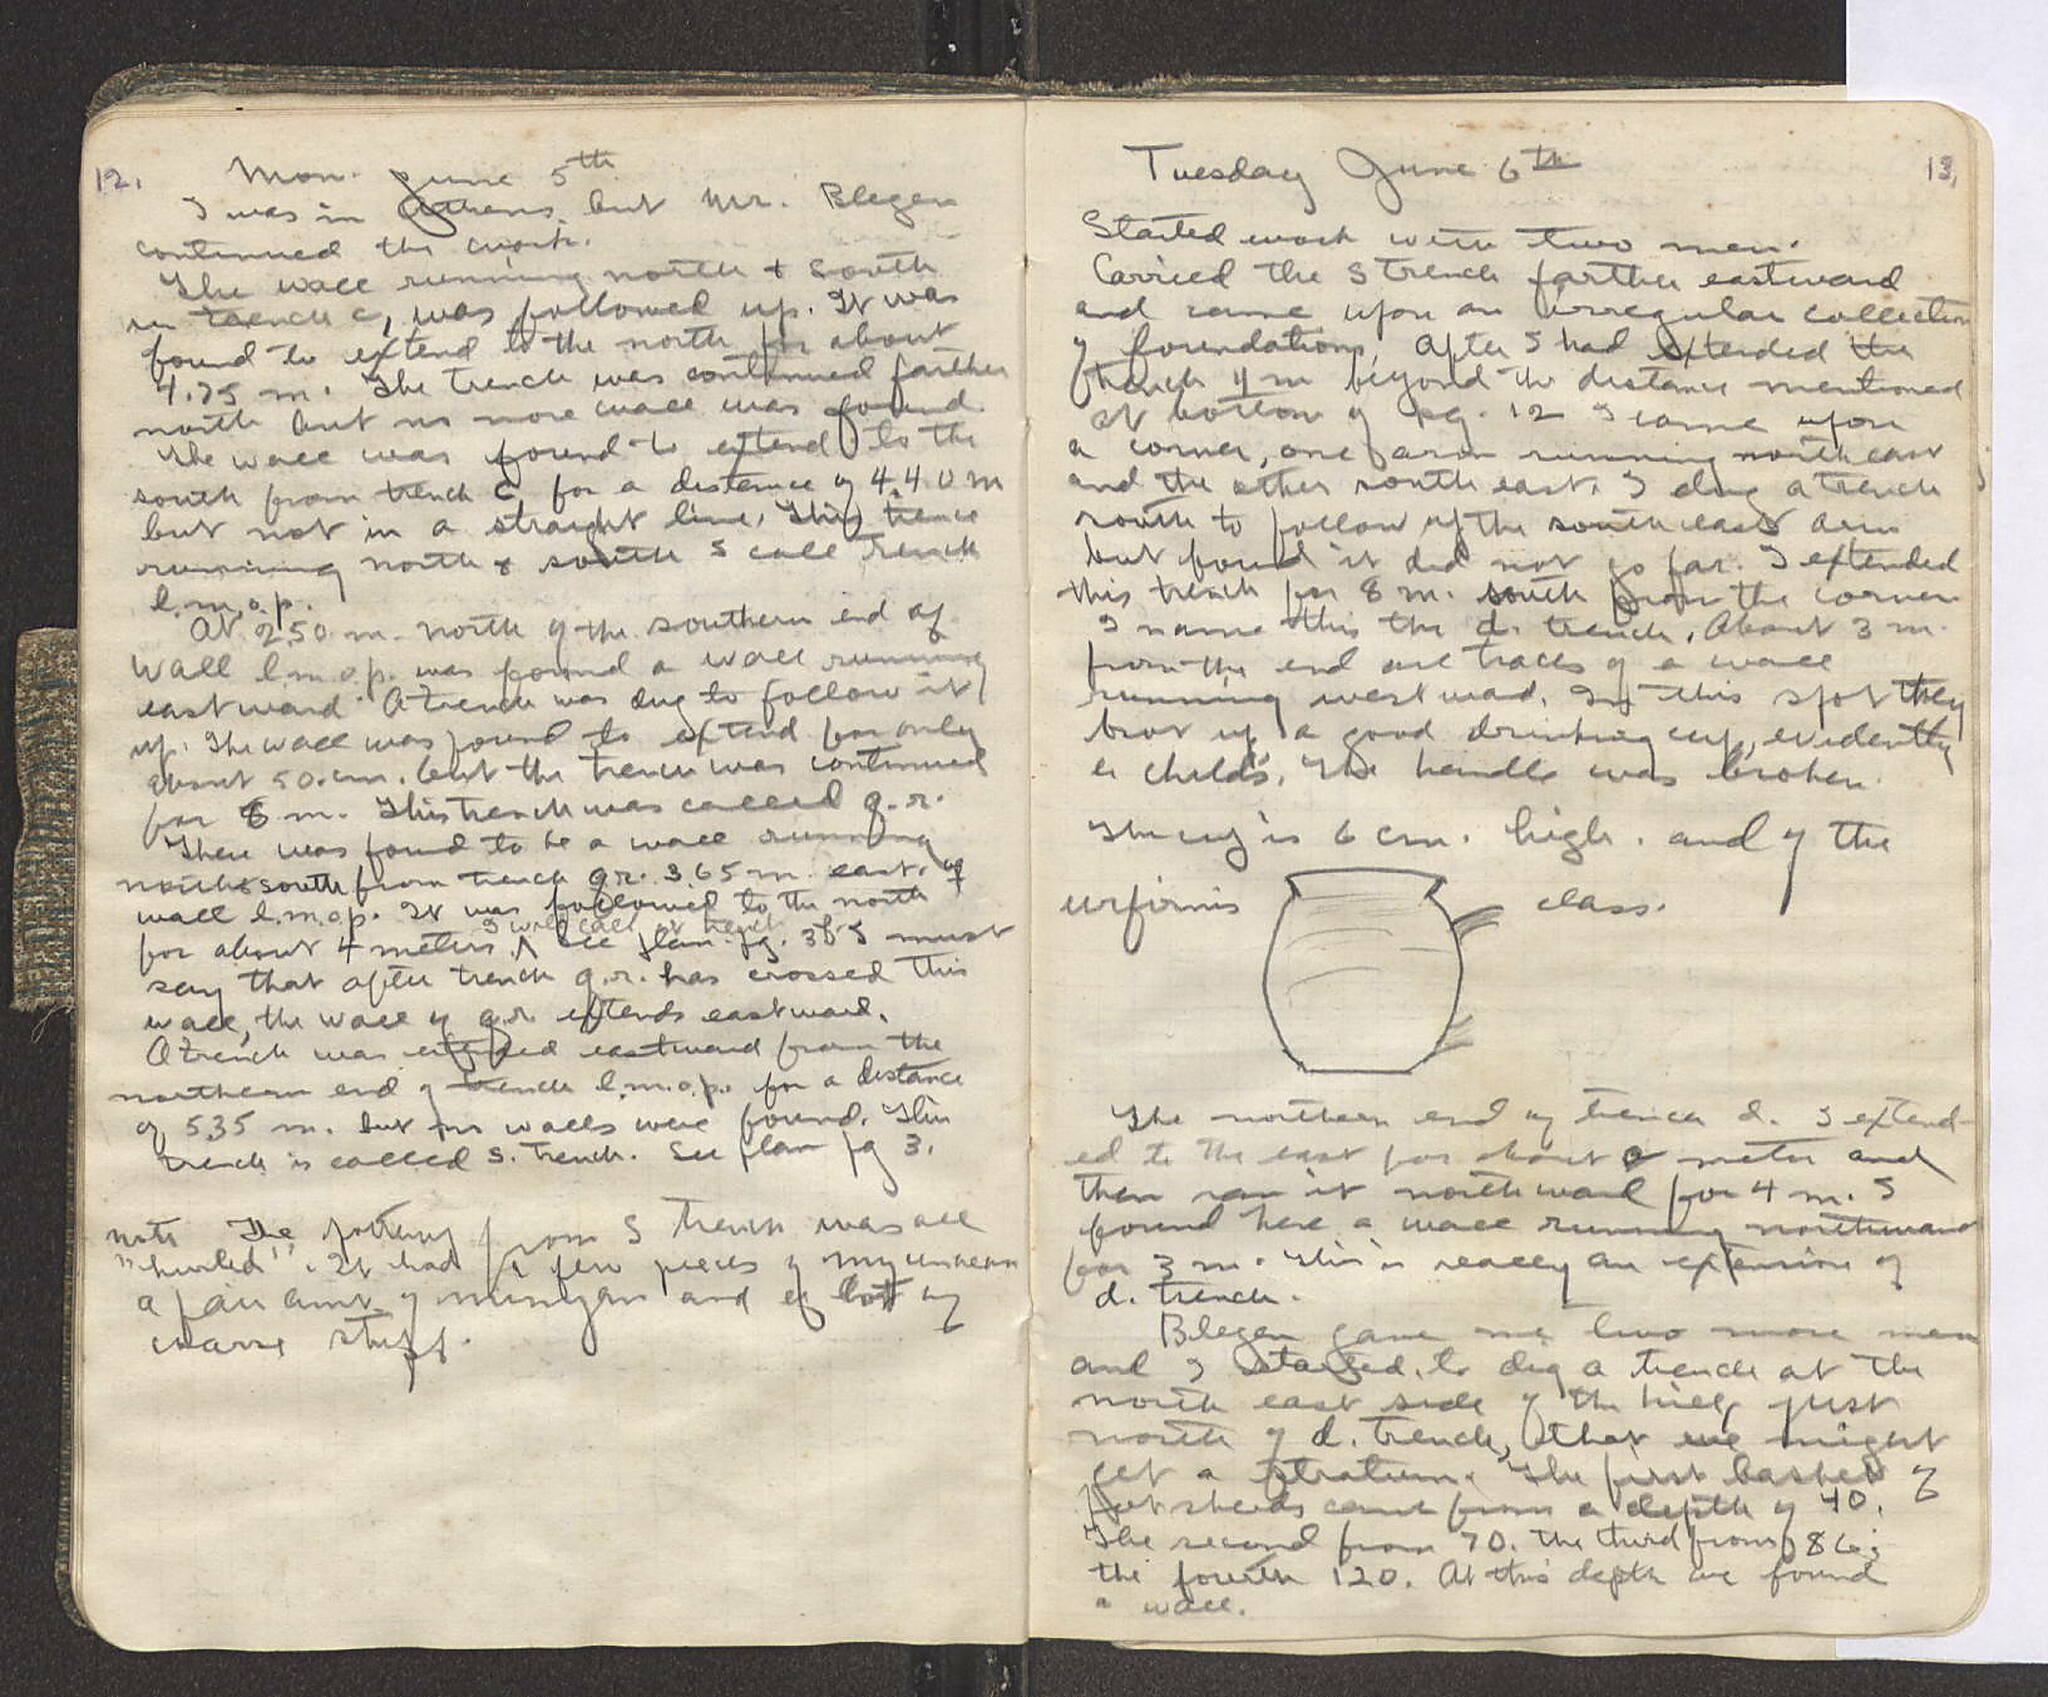 12.
Mon. June 5th
I was in Athens. but Mr. Blegen
continued the work.
The wall running north + south
in trench c, was followed up. It was
found to extend to the north for about
4.75 m. The trench was continued farther
north but no more wall was found.
The wall was found to extend to the
south from trench c, for a distance of 4.40 m
but not in a straight line. This trence
running north & south I call trench
l.m.o.p.
At 2.50 m. north of the southern end of
Wall l.m.o.p. was found a wall running
eastward. A trench was dug to follow it
up. The wall was found to extend for only
about 50. cm. but the trench was continued
for 8 m. This trench was called q.r.
There was found to be a wall running
north & south from trench q.r. 3.65 m. east. of
wall l.m.o.p. It was followed to the north
I will call it trench
for about 4 meters. ^ See plan pg. 3 I must
say that after trench q.r. has crossed this
wall, the wall of q.r. extends eastward.
A trench was extended eastward from the
northern end of trench l.m.o.p. for a distance
of 5.35 m. but no walls were found. This
trench is called S. trench. See plan pg 3.
note The pottery from S trench was all
"hurled". It had a few pieces of mycenaean
a fair amt. of minyan and a lot of
coarse stuff.
13.
Tuesday June 6th
Started work with two men.
Carried the S trench farther eastward
and came upon an irregular collection
of foundations. After I had extended the
trench 4 m beyond the distance mentioned
at bottom of pg. 12 I came upon
a corner, one arm running northeast
and the other south east. I dug a trench
south to follow up the south east arm
but found it did not go far. I extended
this trench for 8 m. south from the corner
I name this the d. trench. About 3 m.
from the end are traces of a wall
running westward. In this spot they
brot up a good drinking cup, evidently
a childs. The handle was broken.
The cup is 6 cm. high. and of the
urfirnis class.
The northern end of trench d. I extend-
ed to the east for about a meter and
then ran it northward for 4 m. I
found here a wall running northward
for 3 m. This is really an extension of
d. trench.
Blegen gave me two more men
and I started to dig a trench at the
north east side of the hill, just
north of d. trench, that we might
get a stratum. The first basket of
potsherds came from a depth of 40.
The second from 70. the third from 86;
the fourth 120. At this depth we found
a wall.